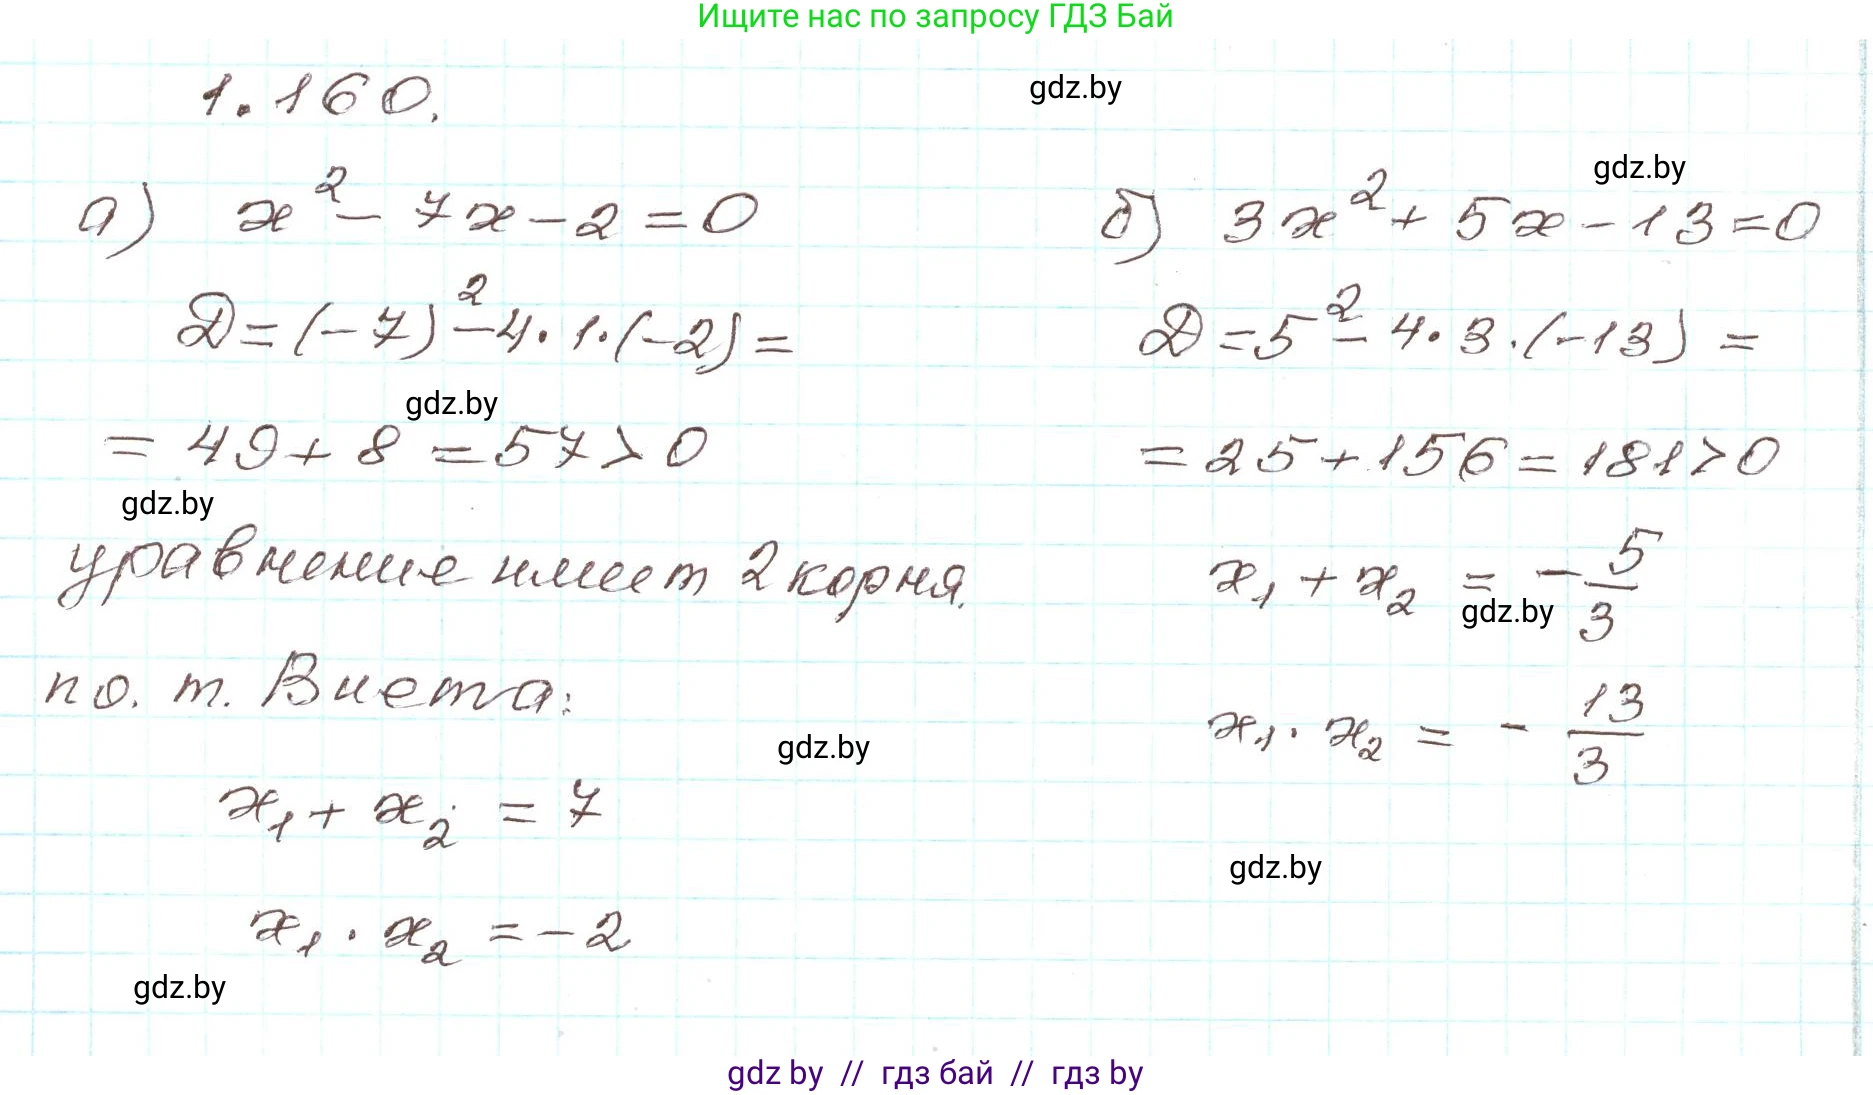 Ищите нас по запросу ГДЗ Бай
1.160.
gdz.by
gdz.by
а) x² - 7x - 2 = 0
D = (-7)² - 4 · 1 · (-2) =
gdz.by
= 49 + 8 = 57 > 0
gdz.by
уравнение имеет 2 корня.
по. т. Виета:
x₁ + x₂ = 7
x₁ · x₂ = -2
gdz.by
б) 3x² + 5x - 13 = 0
D = 5² - 4 · 3 · (-13) =
= 25 + 156 = 181 > 0
x₁ + x₂ = - 5/3
gdz.by
x₁ · x₂ = - 13/3
gdz.by
gdz.by
gdz by // гдз бай // гдз by